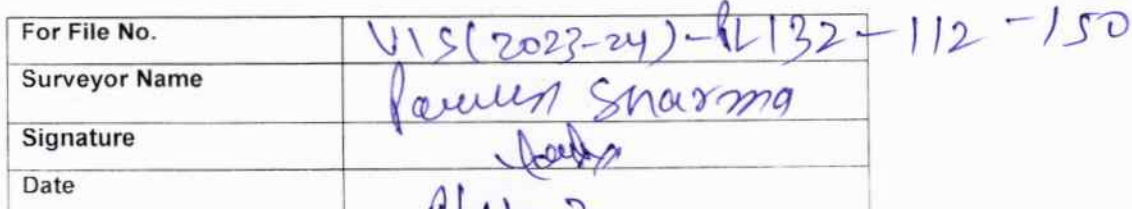 For File No. VIS(2023-24)-PL132-112-150
Surveyor Name Sharma
Signature
Date